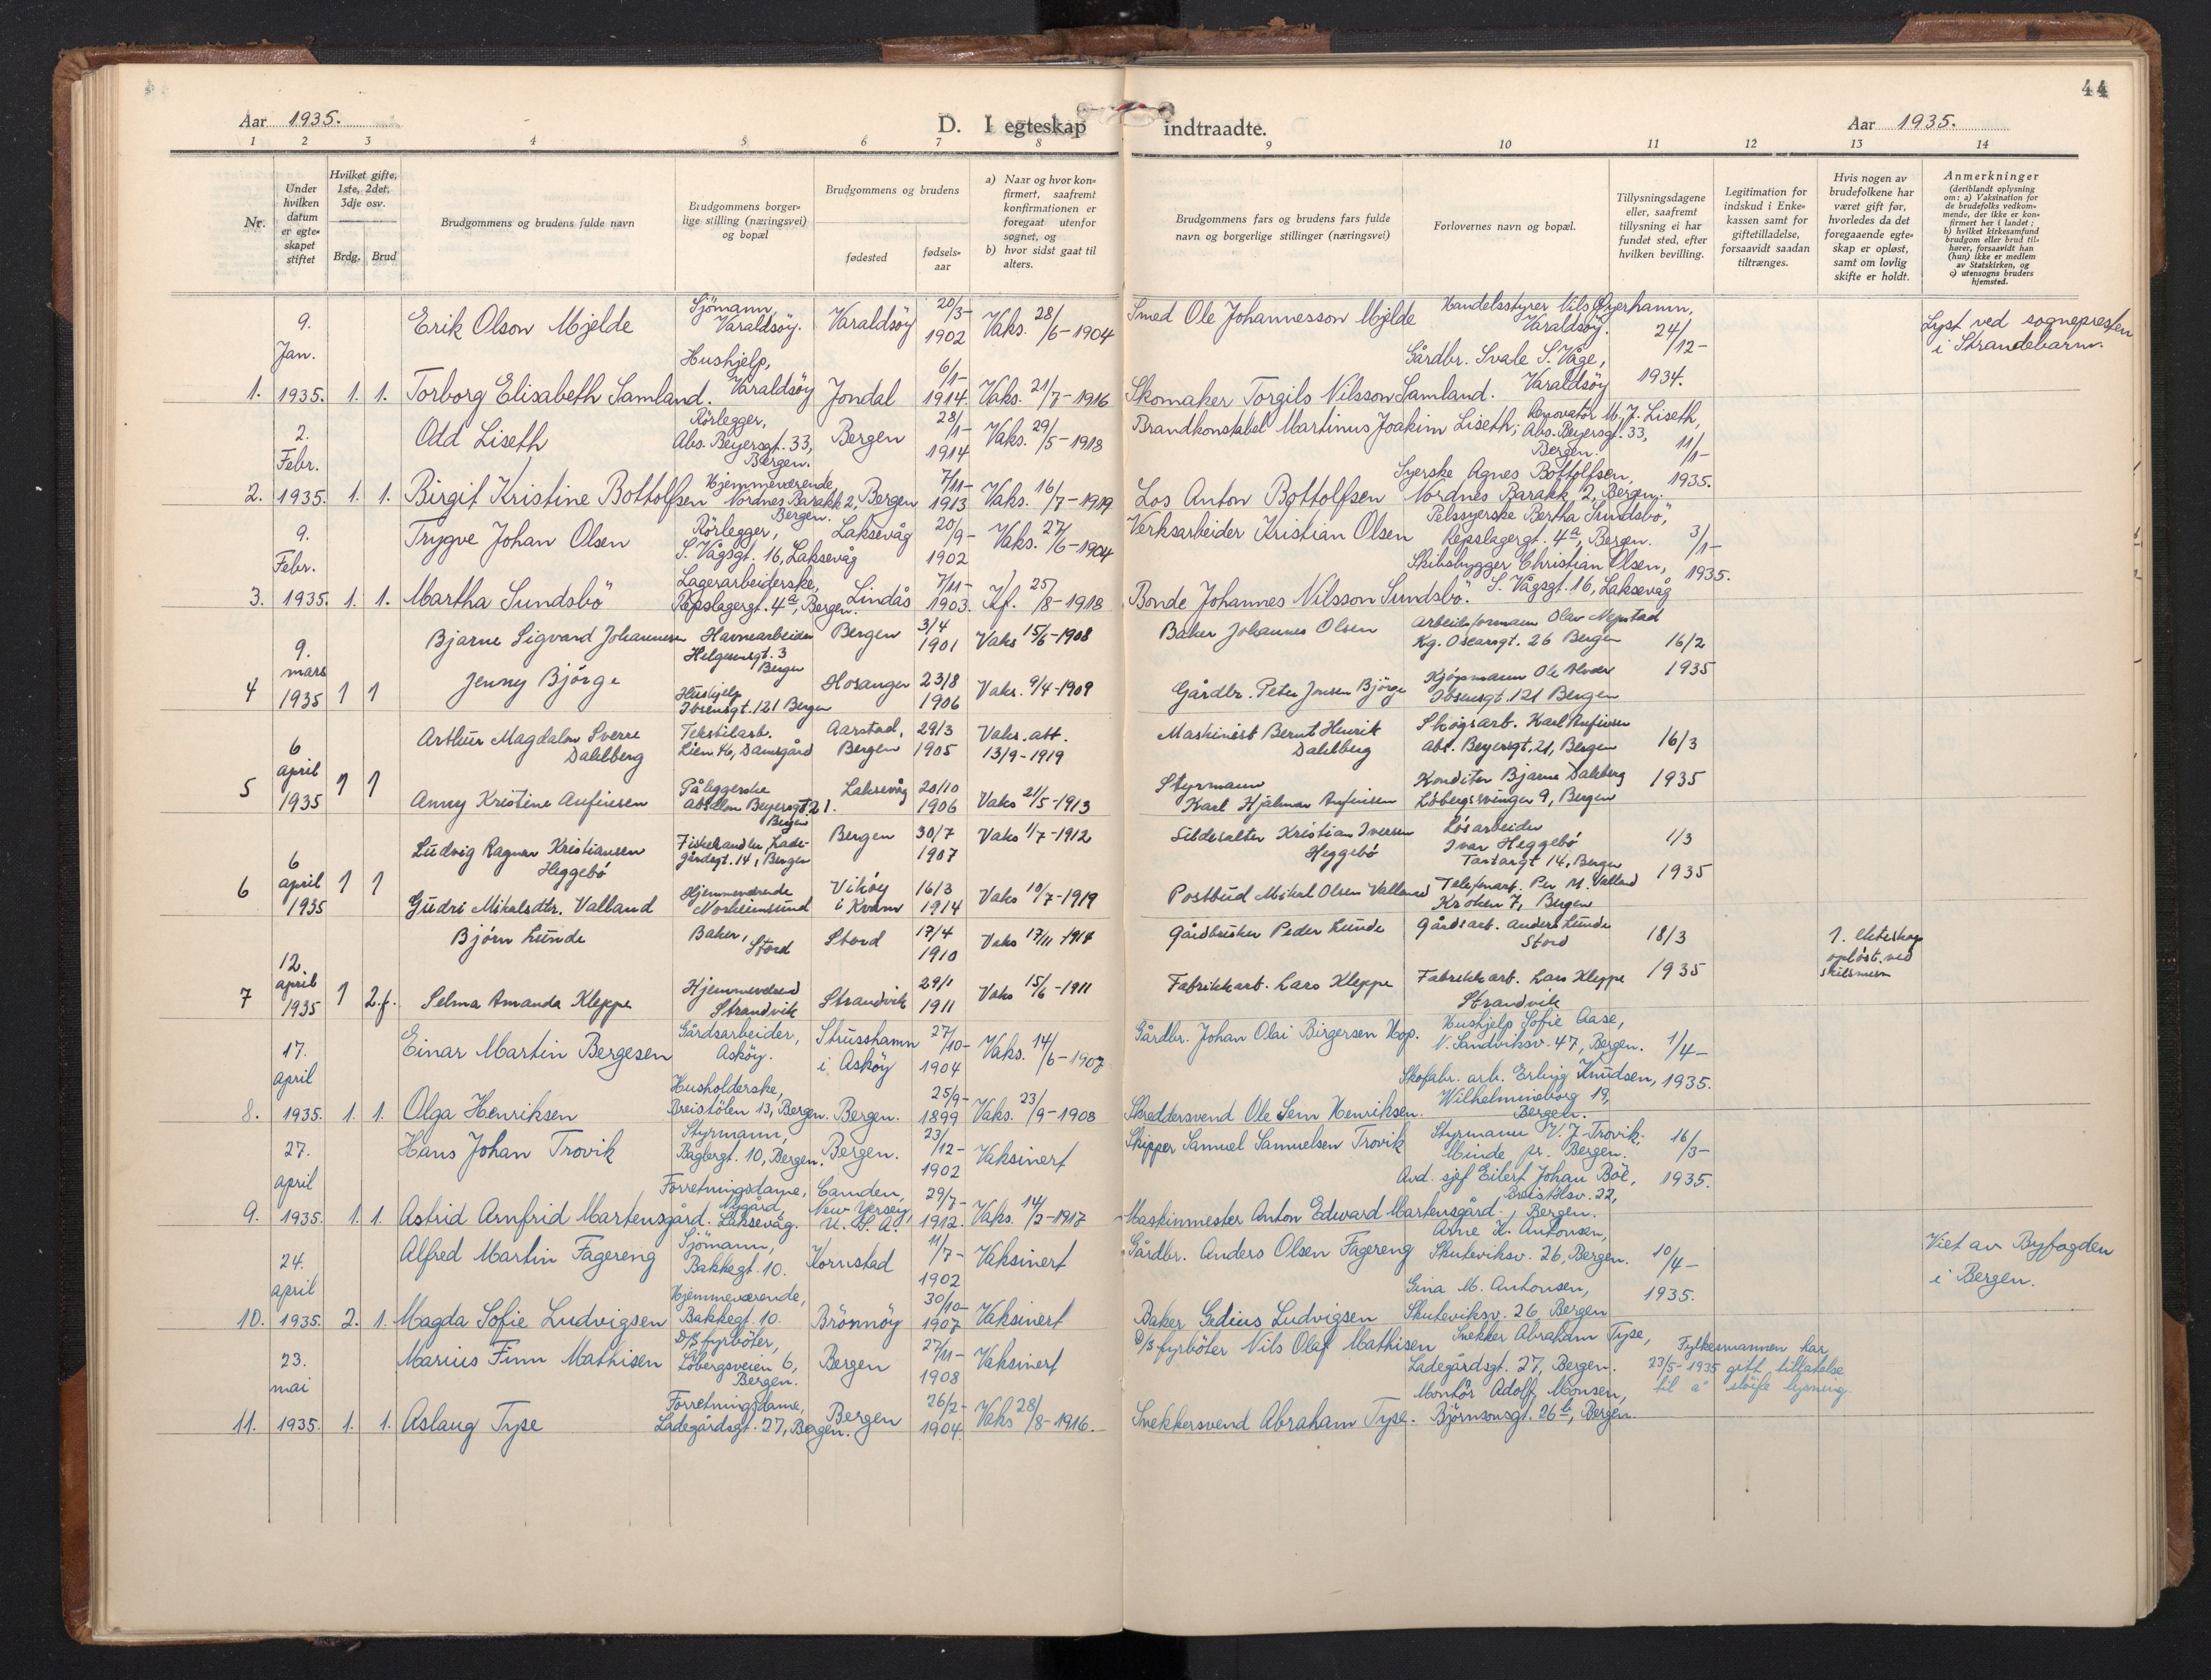 44
Aar 1935.
D. I egteskap indtraadte.
Aar 1935.
1 2 3 4 5 6 7 8 9 10 11 12 13 14
Nr.
Under hvilken datum er egteskapet stiftet
Hvilket gifte, 1ste, 2det, 3dje osv.
Brdg. Brud
Brudgommens og brudens fulde navn
Brudgommens borgerlige stilling (næringsvei) og bopæl
Brudgommens og brudens
fødested
fødselsaar
a) Naar og hvor konfirmert, saafremt konfirmationen er foregaat utenfor sognet, og
b) hvor sidst gaat til alters.
Brudgommens fars og brudens fars fulde navn og borgerlige stillinger (næringsvei)
Forlovernes navn og bopæl.
Tillysningsdagene eller, saafremt tillysning ei har fundet sted, efter hvilken bevilling.
Legitimation for indskud i Enkekassen samt for giftetilladelse, forsaavidt saadan tiltrænges.
Hvis nogen av brudefolkene har været gift før, hvorledes da det foregaaende egteskap er opløst, samt om lovlig skifte er holdt.
Anmerkninger
(deriblandt oplysning om: a) Vaksination for de brudefolks vedkommende, der ikke er konfirmert her i landet; b) hvilket kirkesamfund brudgom eller brud tilhører, forsaavidt han (hun) ikke er medlem av Statskirken, og c) utensogns bruders hjemsted.
1. 9. Jan. 1935. 1. 1.
Erik Olson Mjelde Sjömann, Varaldsöy. Varaldsöy 20/3-1902 Vaks. 28/6-1904 Smed Ole Johannesson Mjelde Handelsstyrer Nils Øyerhamn, Varaldsöy. 24/12-1934. Lyst ved sognepresten i Strandebarm.
Torborg Elisabeth Samland. Hushjelp, Varaldsöy Jondal 6/1-1914. Vaks. 21/7-1916 Skomaker Torgils Nilsson Samland. Gårdbr. Svale S. Våge, Varaldsöy
2. 2. Febr. 1935. 1. 1.
Odd Liseth Rörlegger, Abs. Beyersgt. 33, Bergen. Bergen 28/1-1914 Vaks. 29/5-1918 Brandkonstabel Martinus Joakim Liseth; Renovatör M. J. Liseth, Abs. Beyersgt. 33, Bergen. 11/1-1935.
Birgit Kristine Bottolfsen Hjemmeværende, Nordnes Barakk 2, Bergen. Bergen 7/11-1913 Vaks. 16/7-1919 Los Anton Bottolfsen Syerske Agnes Bottolfsen, Nordnes Barakk 2, Bergen.
3. 9. Febr. 1935. 1. 1.
Trygve Johan Olsen Rörlegger, S. Vågsgt. 16, Laksevåg Laksevåg 20/9-1902 Vaks. 27/6-1904 Verksarbeider Kristian Olsen Pelssyerske Bertha Sundsbö, Repslagergt. 4a, Bergen. 3/1-1935.
Martha Sundsbö Lagerarbeiderske, Repslagergt. 4a, Bergen. Lindås 7/11-1903. Kf. 25/8-1918 Bonde Johannes Nilsson Sundsbö. Skibsbygger Christian Olsen, S. Vågsgt. 16, Laksevåg
4 9. mars 1935 1 1
Bjarne Sigvard Johannesen Havnearbeider Helgesensgt. 3 Bergen Bergen 3/4 1901 Vaks 15/6-1908 Baker Johannes Olsen Arbeidsformann Olav Mjøstad Kg. Oscarsgt. 26 Bergen 16/2 1935
Jenny Bjørge Hushjelp Ibsensgt. 121 Bergen Hosanger 23/8 1906 Vaks. 9/4-1909 Gårdbr. Peter Jensen Bjørge Kjøpmann Ole Alver Ibsensgt. 121 Bergen
5 6 april 1935 1 1
Arthur Magdalon Sverre Dahlberg Tekstilarb. Lien 46, Damsgård Aarstad, Bergen 29/3 1905 Vaks. att. 13/9-1919 Maskinist Bernt Henrik Dahlberg Skogsarb. Karl Anfinsen Abs. Beyersgt. 21, Bergen 16/3 1935
Anny Kristine Anfinsen Påleggerske Absalon Beyersgt. 21. Bergen Laksevåg 20/10 1906 Vaks 21/5-1913 Styrmann Karl Hjalmar Anfinsen Konditor Bjarne Dahlberg Løbergsvingen 9, Bergen
6 6 april 1935 1 1
Ludvig Ragnar Kristiansen Heggebø Fiskehandler, Ladegårdsgt. 14, Bergen Bergen 30/7 1907 Vaks 1/7-1912 Sildesalter Kristian Iversen Heggebø Løsarbeider Ivar Heggebø Tartargt 14, Bergen 1/3 1935
Gudri Mikalsdtr. Valland Hjemmeværende Norheimsund Vikøy i Kvam 16/3 1914 Vaks 10/7-1919 Postbud Mikal Olsen Valland Telefonarb. Per M. Valland Kroken 7, Bergen
7 12. april 1935 1 2.f.
Bjørn Lunde Baker, Stord Stord 17/4 1910 Vaks 17/11-1914 Gårdbruker Peder Lunde Gårdsarb. Anders Lunde Stord 18/3 1935 1. ekteskap opløst ved skilsmisse
Selma Amanda Kleppe Hjemmeværend Strandvik Strandvik 29/1 1911 Vaks 15/6-1911 Fabrikkarb. Lars Kleppe Fabrikkarb. Lars Kleppe Strandvik
8. 17. april 1935. 1. 1.
Einar Martin Bergesen Gårdsarbeider, Asköy. Strusshamn i Asköy 27/10-1904 Vaks. 14/6-1907 Gårdbr. Johan Olai Birgersen Hop. Hushjelp Sofie Aase, N. Sandviksv. 47, Bergen. 1/4-1935.
Olga Henriksen Husholderske, Breistölen 13, Bergen. Bergen. 25/9-1899 Vaks. 23/9-1908 Skreddersvend Ole Sem Henriksen. Skofabr. arb. Erling Knudsen, Wilhelmineborg 19, Bergen.
9. 27. april 1935. 1. 1.
Hans Johan Trovik Styrmann, Baglergt. 10, Bergen. Bergen. 23/12-1902 Vaksinert Skipper Samuel Samuelsen Trovik Styrmann V. J. Trovik. Minde pr. Bergen. 16/3-1935.
Astrid Arnfrid Martensgård. Forretningsdame, Nygård, Laksevåg. Camden, New Yersey, U. S. A. 29/7-1912. Vaks. 14/2-1917 Maskinmester Anton Edward Martensgård. Avd. sjef Eilert Johan Böe, Breistölsv. 22, Bergen.
10. 24. april 1935. 2. 1.
Alfred Martin Fagereng Sjömann, Bakkegt. 10. Kornstad 11/7-1902 Vaksinert Gårdbr. Anders Olsen Fagereng Arne K. Antonsen, Skuteviksv. 26, Bergen. 10/4-1935. Viet av Byfogden i Bergen.
Magda Sofie Ludvigsen Hjemmeværende, Bakkegt. 10. Brönnöy 30/10-1907 Vaksinert Baker Gedius Ludvigsen Gina M. Anthonsen, Skuteviksv. 26, Bergen
11. 23. mai 1935. 1. 1.
Marius Finn Mathisen D/S fyrböter, Löbergsveien 6, Bergen. Bergen 27/11-1908 Vaksinert D/S fyrböter Nils Olaf Mathisen Snekker Abraham Tyse, Ladegårdsgt. 27, Bergen. Fylkesmannen har 23/5-1935 gitt tillatelse til å slöife lysning.
Aslaug Tyse Forretningsdame, Ladegårdsgt. 27, Bergen. Bergen 26/2-1904. Vaks 28/8-1916. Snekkersvend Abraham Tyse. Montör Adolf Monsen, Björnsonsgt. 26b, Bergen.